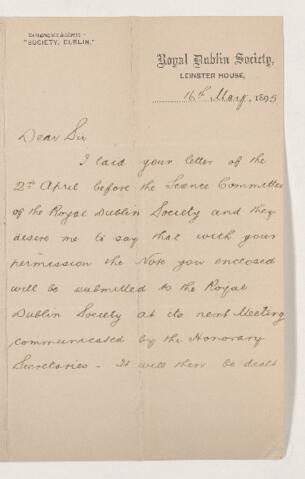 Telegraphic Address—
"SOCIETY, DUBLIN."
Royal Dublin Society,
LEINSTER HOUSE,
16th May, 1895
Dear Sir
I laid your letter of the
2nd April before the Science Committee
of the Royal Dublin Society and they
desire me to say that with your
permission the Note you enclosed
will be submitted to the Royal
Dublin Society at its next Meeting
communicated by the Honorary
Secretaries - It will then be dealt